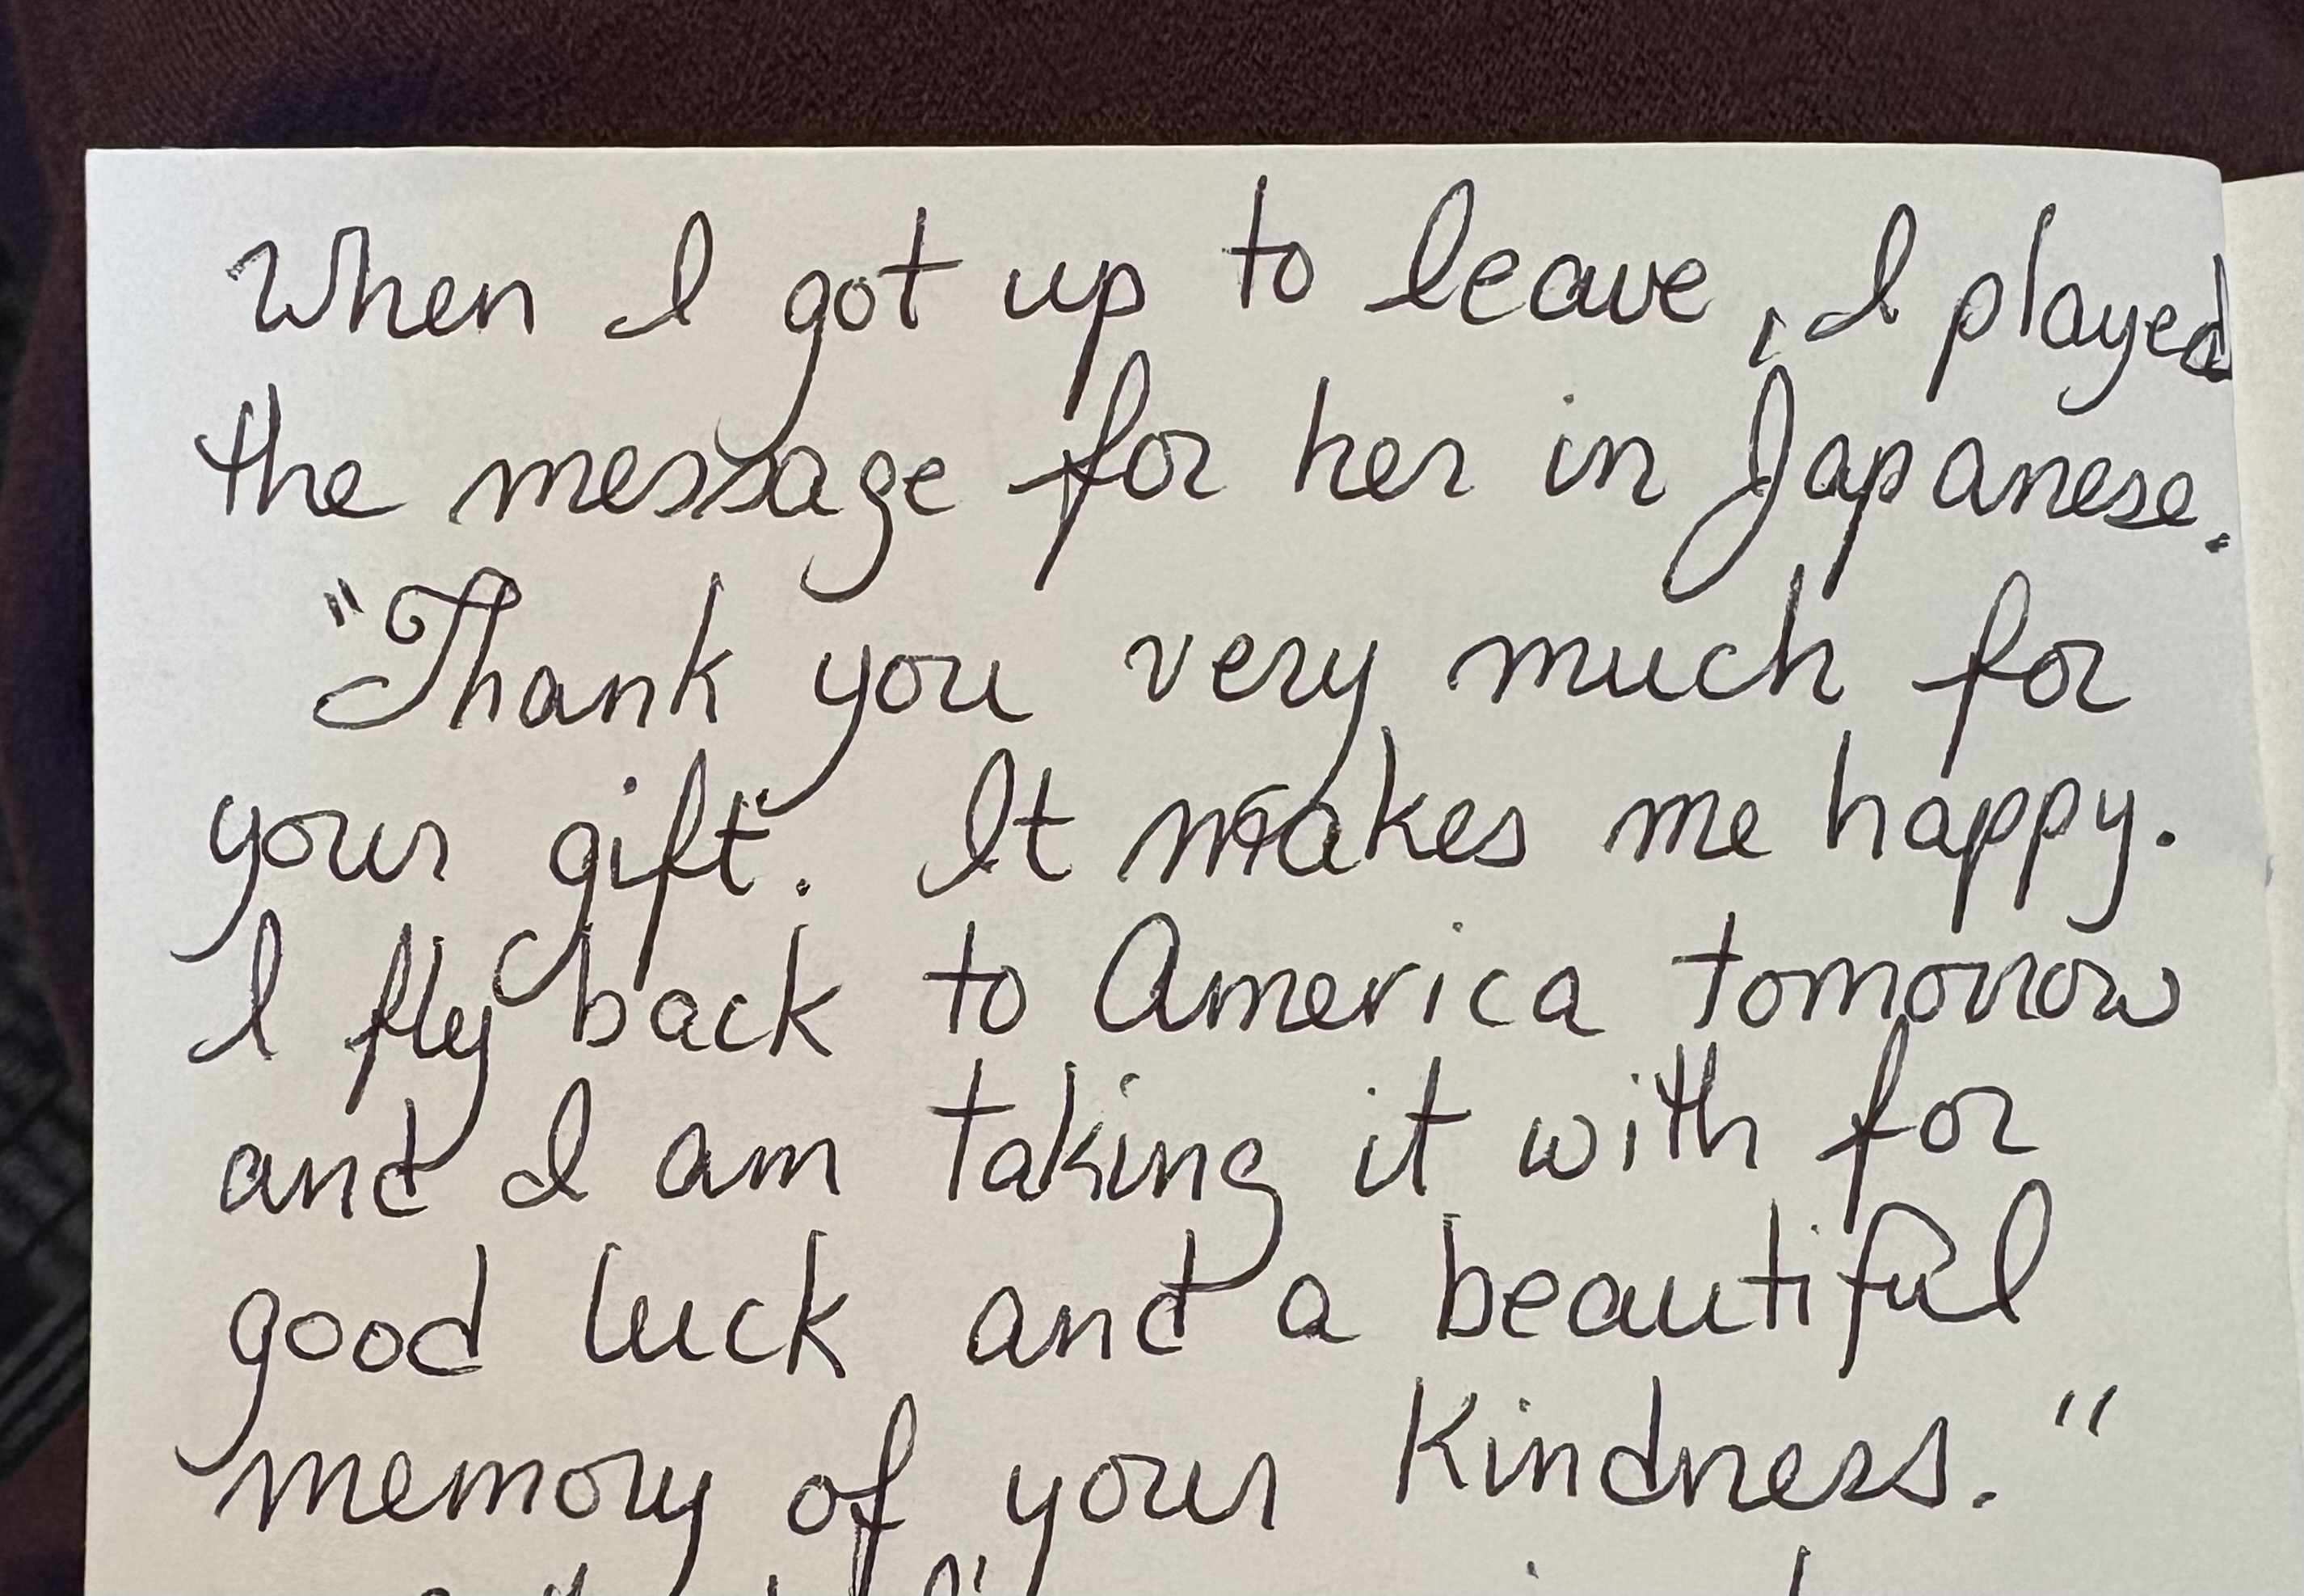 When I got up to leave, I played
the message for her in Japanese.
"Thank you very much for
your gift. It makes me happy.
I fly back to America tomorrow
and I am taking it with for
good luck and a beautiful
memory of your kindness."